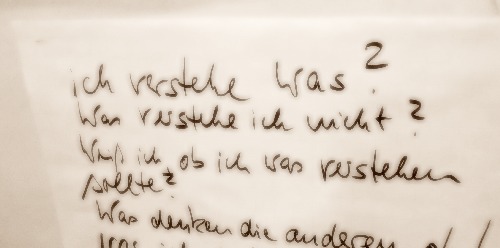 ich verstehe was?
Was verstehe ich nicht?
Weiß ich, ob ich was verstehen
sollte?
Was denken die anderen